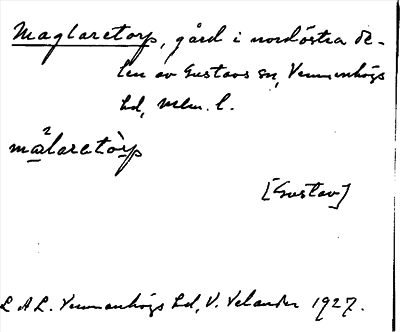 Maglaretorp, gård i nordöstra de-
len av Gustavs sn, Vemmenhögs
hd, Mlm. l.
ma²laretòrp
[Gustav]
LAL. Vemmenhögs hd, V. Velander 1927.